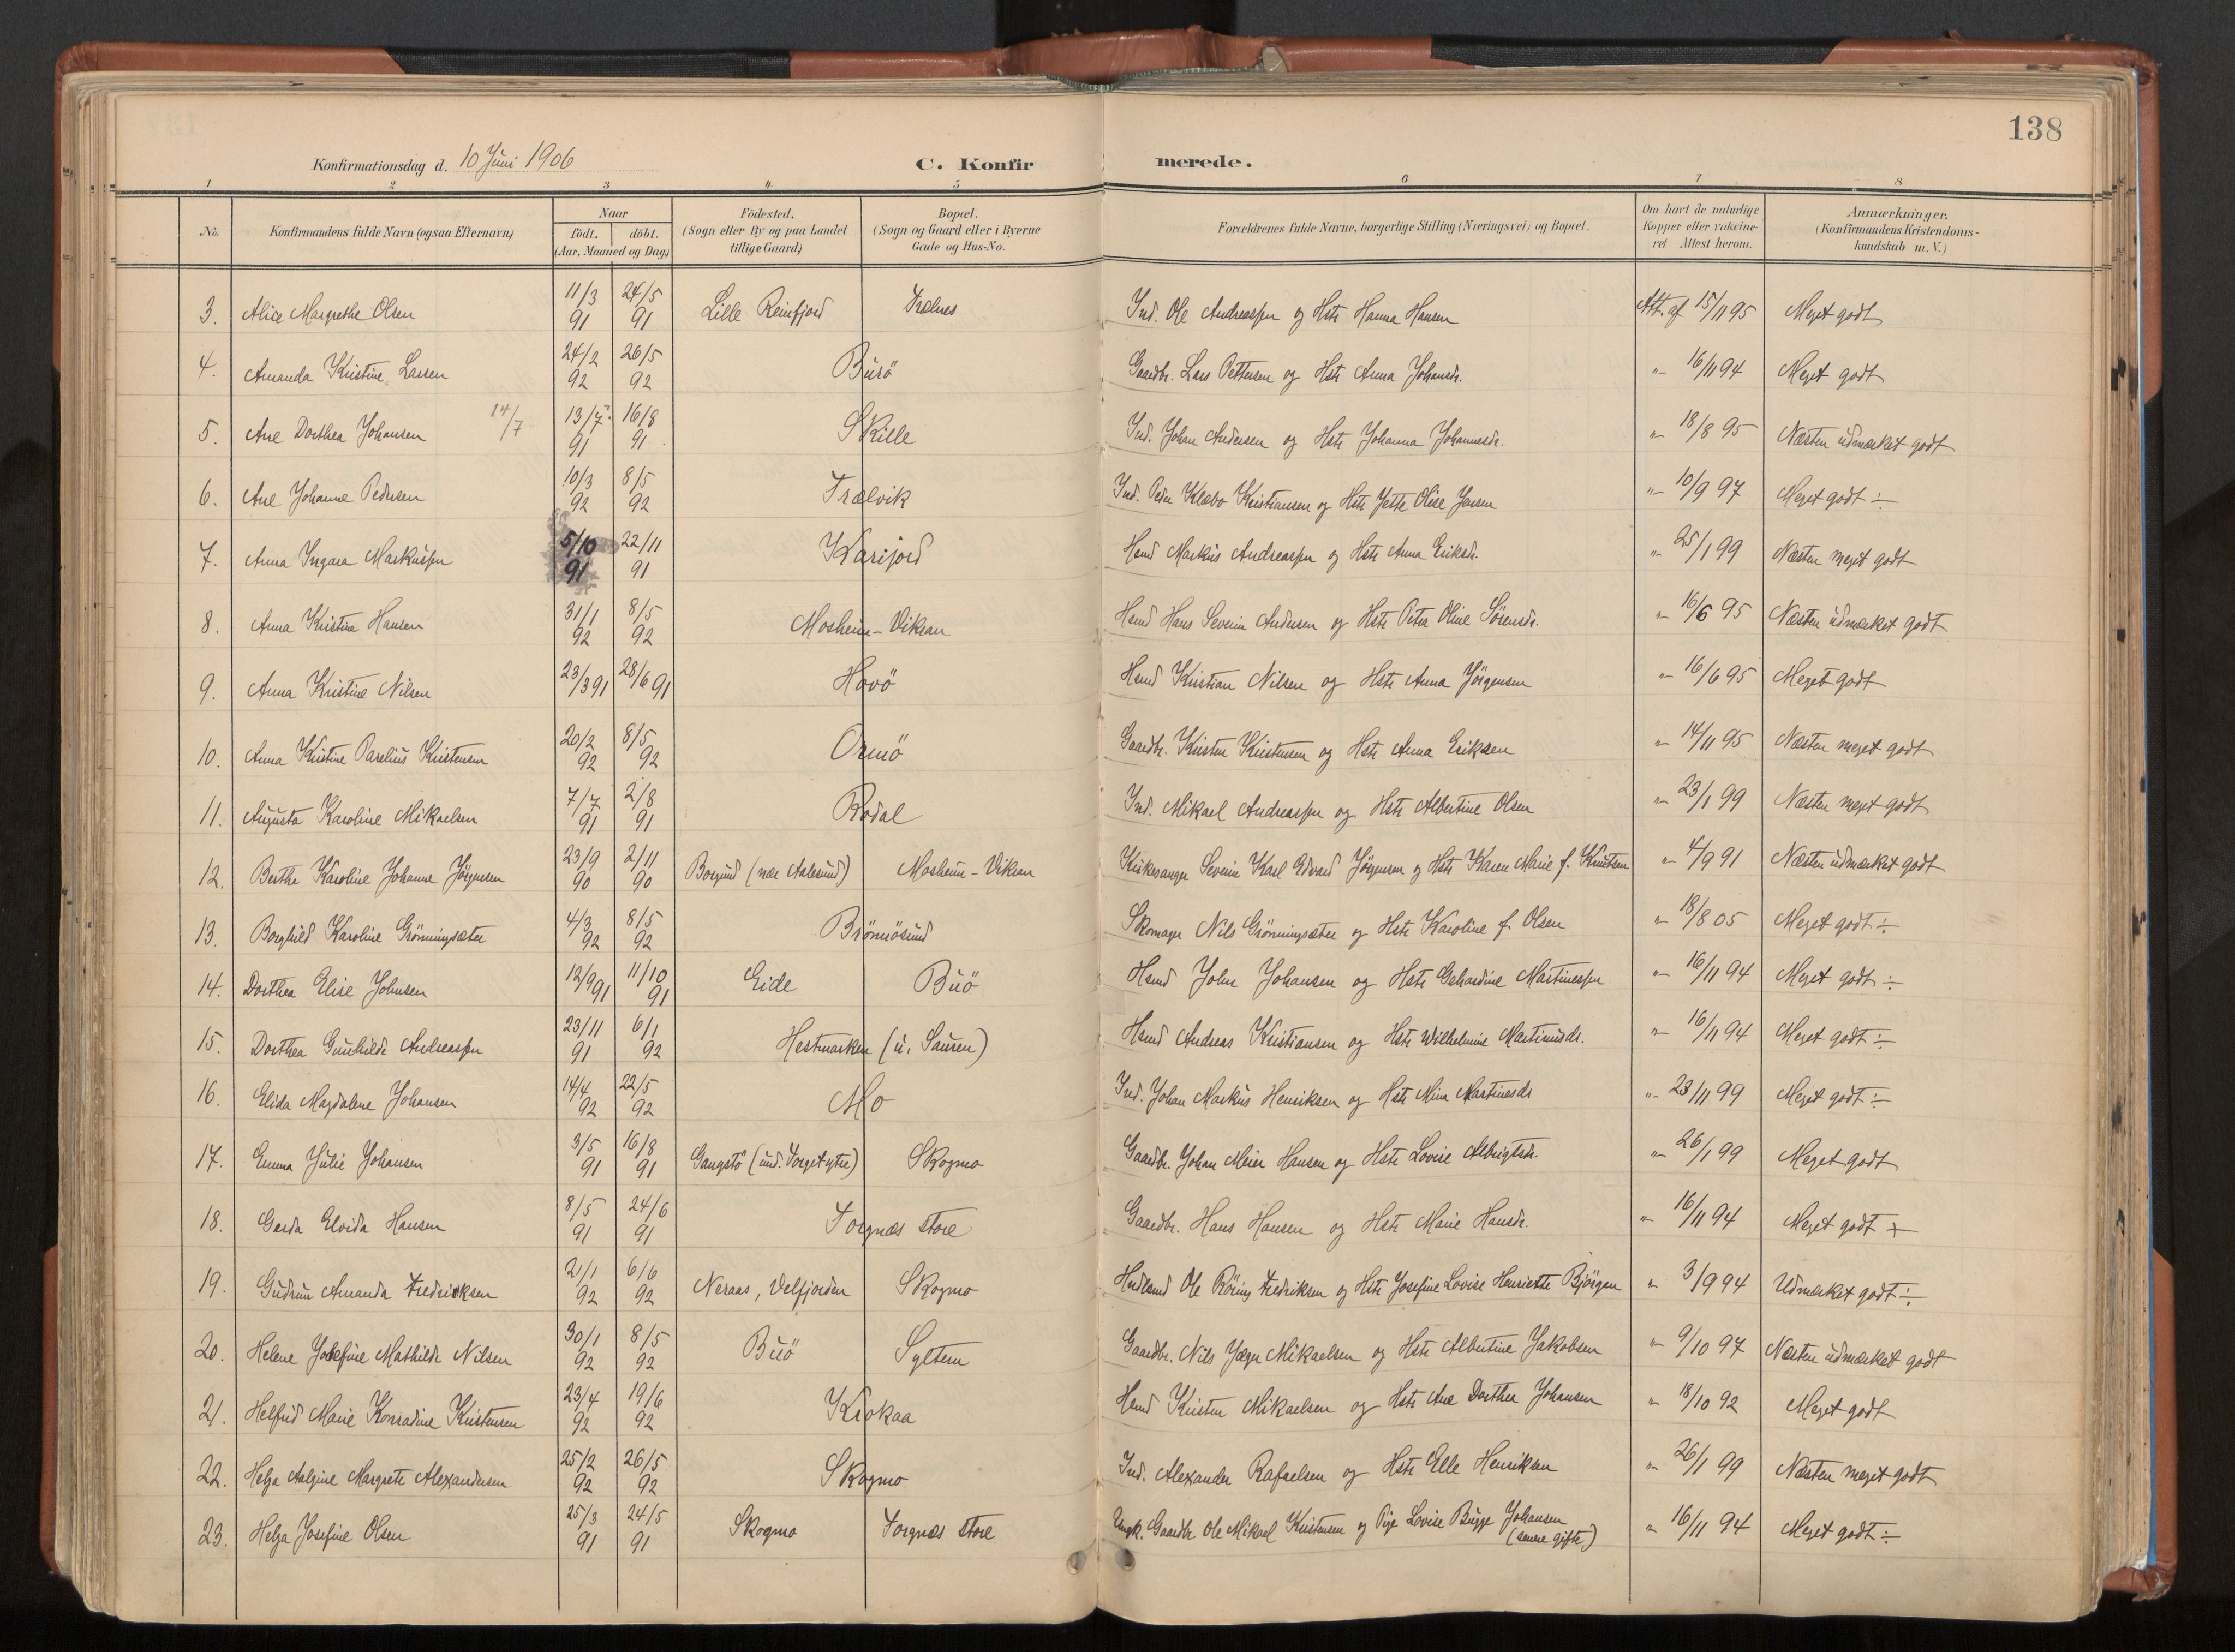 138
Konfirmationsdag d. 10 Juni 1906
C. Konfirmerede.
1 2 3 4 5 6 7 8
No. Konfirmandens fulde Navn (ogsaa Efternavn) Naar födt. döbt. (Aar, Maaned og Dag.) Födested. (Sogn eller By og paa Landet tillige Gaard) Bopæl. (Sogn og Gaard eller i Byerne Gade og Hus-No. Forældrenes fulde Navne, borgerlige Stilling (Næringsvei) og Bopæl. Om havt de naturlige Kopper eller vakcineret Attest herom. Anmærkninger. (Konfirmandens Kristendomskundskab m. V.)
3. Alice Margrethe Olsen 11/3 91 24/5 91 Lille Reinfjord Trælnes Ind. Ole Andreassen og Hstr Hanna Hansen Att. af 15/11 95 Meget godt
4. Amanda Kristine Larsen 24/2 92 26/5 92 Burö Gaardbr. Lars Pettersen og Hstr Anna Johansdr. " 16/11 94 Meget godt
5. Ane Dorthea Johansen 14/7 13/7 91 16/8 91 Skille Ind. Johan Andersen og Hstr Johanna Johannesdr. " 18/8 95 Næsten udmærket godt
6. Ane Johanne Pedersen 10/3 92 8/5 92 Trælvik Ind. Peder Klæbo Kristiansen og Hstr Jette Olise Jensen " 10/9 97 Meget godt ÷
7. Anna Ingara Markussen 5/10 91 22/11 91 Karijord Hsmd Markus Andreassen og Hstr Anna Eriksdr. " 25/1 99 Næsten meget godt
8. Anna Kristine Hansen 31/1 92 8/5 92 Mosheim-Vikran Hsmd Hans Severin Andersen og Hstr Petra Oline Sørensdr. " 16/6 95 Næsten udmærket godt
9. Anna Kristine Nilsen 23/3 91 28/6 91 Havö Hsmd Kristian Nilsen og Hstr Anna Jörgensen " 16/6 95 Meget godt
10. Anna Kristine Parelius Kristensen 20/2 92 8/5 92 Ormö Gaardbr. Kristen Kristensen og Hstr Anna Eriksen " 14/11 95 Næsten meget godt
11. Augusta Karoline Mikaelsen 7/7 91 2/8 91 Rodal Ind. Mikael Andreassen og Hstr Albertine Olsen " 23/1 99 Næsten meget godt
12. Berthe Karoline Johanne Jörgensen 23/9 90 2/11 90 Borgund (nær Aalesund) Mosheim-Vikran Kirkesanger Severin Karl Edvard Jörgensen og Hstr Karen Marie f. Knutsen " 4/9 91 Næsten udmærket godt
13. Borghild Karoline Grönningsæter 4/3 92 8/5 92 Brönnösund Skomager Nils Grönningsæter og Hstr Karoline f. Olsen " 18/8 05 Meget godt ÷
14. Dorthea Elise Johnsen 12/9 91 11/10 91 Eide Buö Hsmd John Johansen og Hstr Gehardine Martinessen " 16/11 94 Meget godt ÷
15. Dorthea Gunhilde Andreassen 23/11 91 6/1 92 Hestmarken (u. Sausen) Hsmd Andreas Kristiansen og Hstr Wilhelmine Martinusdr. " 16/11 94 Meget godt ÷
16. Elida Magdalene Johansen 14/4 92 22/5 92 Mo Ind. Johan Markus Henriksen og Hstr Mina Martinesdr " 23/11 99 Meget godt ÷
17. Emma Julie Johansen 3/5 91 16/8 91 Gangstö (und. Torget ytre) Skogmo Gaardbr. Johan Meier Hansen og Hstr Lovise Albrigtsdr. " 26/1 99 Meget godt
18. Gerda Elvida Hansen 8/5 91 24/6 91 Torgnæs store Gaardbr. Hans Hansen og Hstr Marie Hansdr. " 16/11 94 Meget godt +
19. Gudrun Amanda Fredriksen 2/1 92 6/6 92 Neraas, Velfjorden Skogmo Ole Röring Fredriksen og Hstr Josefine Lovise Henriette Bjørgan " 3/9 94 Udmærket godt ÷
20. Helene Josefine Mathilde Nilsen 30/1 92 8/5 92 Buö Syltern Gaardbr. Nils Jæger Mikaelsen og Hstr Albertine Jakobsen " 9/10 97 Næsten udmærket godt
21. Helfrid Marie Konradine Kristensen 23/4 92 19/6 92 Krokaa Hsmd Kristen Mikaelsen og Hstr Ane Dorthea Johansen " 18/10 92 Meget godt
22. Helga Aalgine Margrete Alexandersen 25/2 92 26/5 92 Skogmo Ind. Alexander Rafaelsen og Hstr Elle Henriksen " 26/1 99 Næsten meget godt
23. Helga Josefine Olsen 25/3 91 24/5 91 Skogmo Torgnæs store Ungk. Gaardbr. Ole Mikael Kristensen og Pige Lovise Bugge Johansen (senere gifte) " 16/11 94 Meget godt ÷